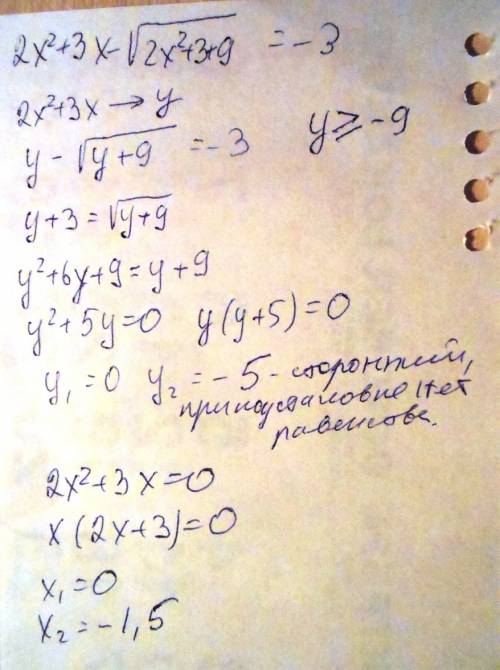 2x²+3x-√(2x²+3+9) = -3
2x²+3x → y
y - √(y+9) = -3 y ≥ -9
y+3 = √(y+9)
y²+6y+9=y+9
y²+5y=0 y(y+5)=0
y₁=0 y₂=-5 - сторонний,
при подстановке нет
равенства.
2x²+3x=0
x(2x+3)=0
x₁=0
x₂=-1,5